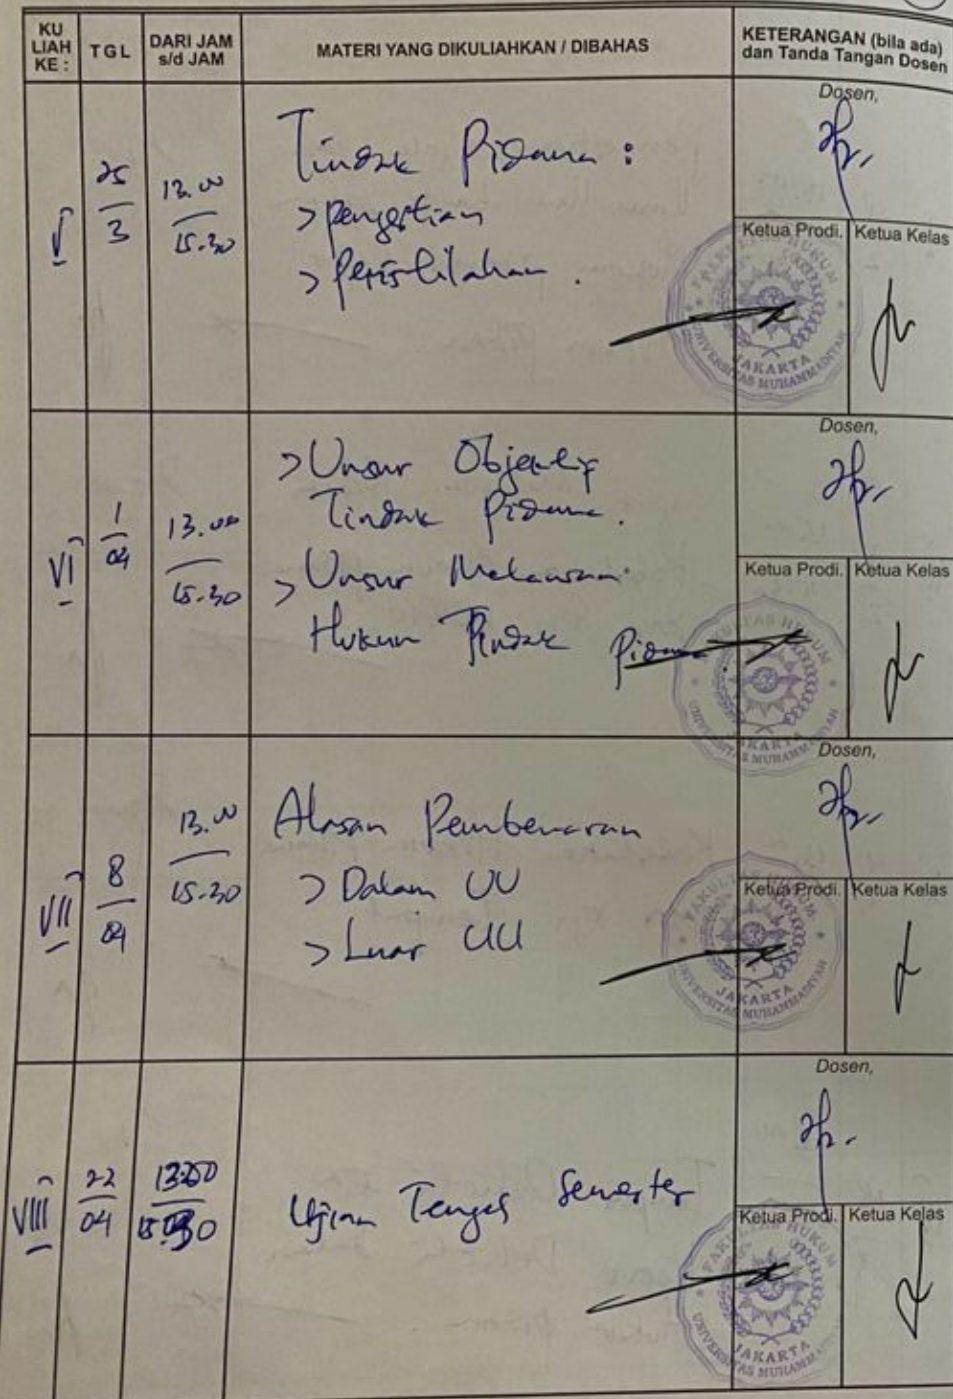 KU LIAH KE :
TGL
DARI JAM s/d JAM
MATERI YANG DIKULIAHKAN / DIBAHAS
KETERANGAN (bila ada) dan Tanda Tangan Dosen
V
25
3
13.00
15.30
Tindak Pidana :
> pengertian
> Peristilahan .
Dosen,
Ketua Prodi.
Ketua Kelas
FAKULTAS HUKUM
UNIVERSITAS MUHAMMADIYAH
JAKARTA
VI
1
04
13.00
15.30
> Unsur Objektif
Tindak Pidana.
> Unsur Melawan
Hukum Tindak Pidana.
Dosen,
Ketua Prodi.
Ketua Kelas
FAKULTAS HUKUM
UNIVERSITAS MUHAMMADIYAH
JAKARTA
VII
8
04
13.00
15.30
Alasan Pembenaran
> Dalam UU
> Luar UU
Dosen,
Ketua Prodi.
Ketua Kelas
FAKULTAS HUKUM
UNIVERSITAS MUHAMMADIYAH
JAKARTA
VIII
22
04
Ujian Tengah Semester
Dosen,
Ketua Prodi.
Ketua Kelas
FAKULTAS HUKUM
UNIVERSITAS MUHAMMADIYAH
JAKARTA